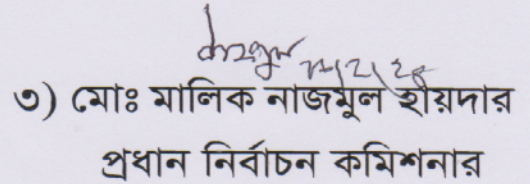 ৩) মোঃ মালিক নাজমুল হায়দার
প্রধান নির্বাচন কমিশনার